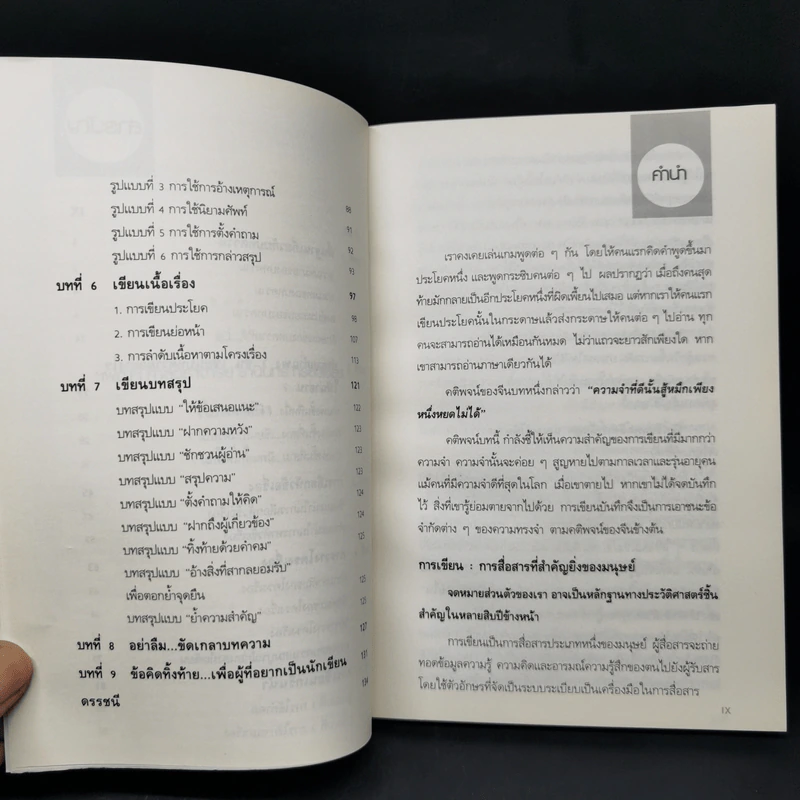 รูปแบบที่ 3 การใช้การอ้างเหตุการณ์ 88
รูปแบบที่ 4 การใช้นิยามศัพท์ 91
รูปแบบที่ 5 การใช้การตั้งคำถาม 92
รูปแบบที่ 6 การใช้การกล่าวสรุป 93
บทที่ 6 เขียนเนื้อเรื่อง 97
1. การเขียนประโยค 98
2. การเขียนย่อหน้า 107
3. การลำดับเนื้อหาตามโครงเรื่อง 113
บทที่ 7 เขียนบทสรุป 121
บทสรุปแบบ "ให้ข้อเสนอแนะ" 122
บทสรุปแบบ "ฝากความหวัง" 122
บทสรุปแบบ "ชักชวนผู้อ่าน" 123
บทสรุปแบบ "สรุปความ" 123
บทสรุปแบบ "ตั้งคำถามให้คิด" 124
บทสรุปแบบ "ฝากถึงผู้เกี่ยวข้อง" 124
บทสรุปแบบ "ทิ้งท้ายด้วยคำคม" 125
บทสรุปแบบ "อ้างสิ่งที่สากลยอมรับ"
เพื่อตอกย้ำจุดยืน
บทสรุปแบบ "ย้ำความสำคัญ"
บทที่ 8 อย่าลืม...ขัดเกลาบทความ 127
บทที่ 9 ข้อคิดทิ้งท้าย...เพื่อผู้ที่อยากเป็นนักเขียน 131
ดรรชนี 134
คำนำ
เราคงเคยเล่นเกมพูดต่อ ๆ กัน โดยให้คนแรกคิดคำพูดขึ้นมา
ประโยคหนึ่ง และพูดกระซิบคนต่อ ๆ ไป ผลปรากฏว่า เมื่อถึงคนสุด
ท้ายมักกลายเป็นอีกประโยคหนึ่งที่ผิดเพี้ยนไปเสมอ แต่หากเราให้คนแรก
เขียนประโยคนั้นในกระดาษแล้วส่งกระดาษให้คนต่อ ๆ ไปอ่าน ทุก
คนจะสามารถอ่านได้เหมือนกันหมด ไม่ว่าแถวจะยาวสักเพียงใด หาก
เขาสามารถอ่านภาษาเดียวกันได้
คติพจน์ของจีนบทหนึ่งกล่าวว่า "ความจำที่ดีนั้นสู้หมึกเพียง
หนึ่งหยดไม่ได้"
คติพจน์บทนี้ กำลังชี้ให้เห็นความสำคัญของการเขียนที่มีมากกว่า
ความจำ ความจำนั้นจะค่อย ๆ สูญหายไปตามกาลเวลาและรุ่นอายุคน
แม้คนที่มีความจำดีที่สุดในโลก เมื่อเขาตายไป หากเขาไม่ได้จดบันทึก
ไว้ สิ่งที่เขารู้ย่อมตายจากไปด้วย การเขียนบันทึกจึงเป็นการเอาชนะข้อ
จำกัดต่าง ๆ ของความทรงจำ ตามคติพจน์ของจีนข้างต้น
การเขียน : การสื่อสารที่สำคัญยิ่งของมนุษย์
จดหมายส่วนตัวของเรา อาจเป็นหลักฐานทางประวัติศาสตร์ชิ้น
สำคัญในหลายสิบปีข้างหน้า
การเขียนเป็นการสื่อสารประเภทหนึ่งของมนุษย์ ผู้สื่อสารจะถ่าย
ทอดข้อมูลความรู้ ความคิดและอารมณ์ความรู้สึกของตนไปยังผู้รับสาร
โดยใช้ตัวอักษรที่จัดเป็นระบบระเบียบเป็นเครื่องมือในการสื่อสาร
IX